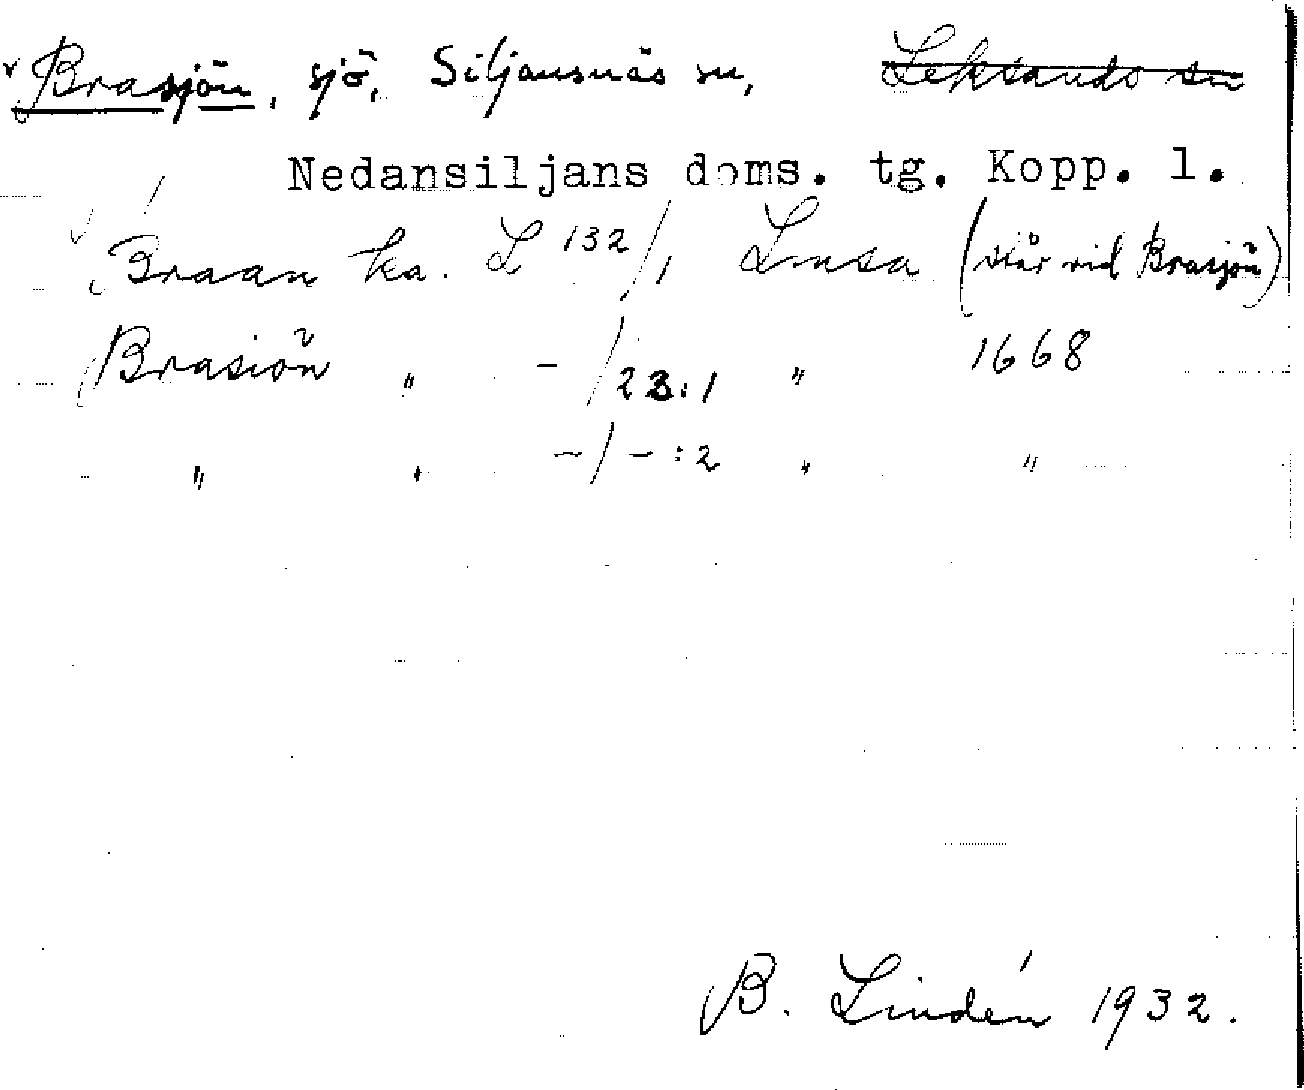 v Brasjön, sjö, Siljansnäs sn, Leksands sn
Nedansiljans doms. tg. Kopp. l.
Braan ka. L 132/1 Lmsa (står vid Brasjön)
Brasiön " - /23:1 " 1668
" " - / - :2 " "
B. Lindén 1932.